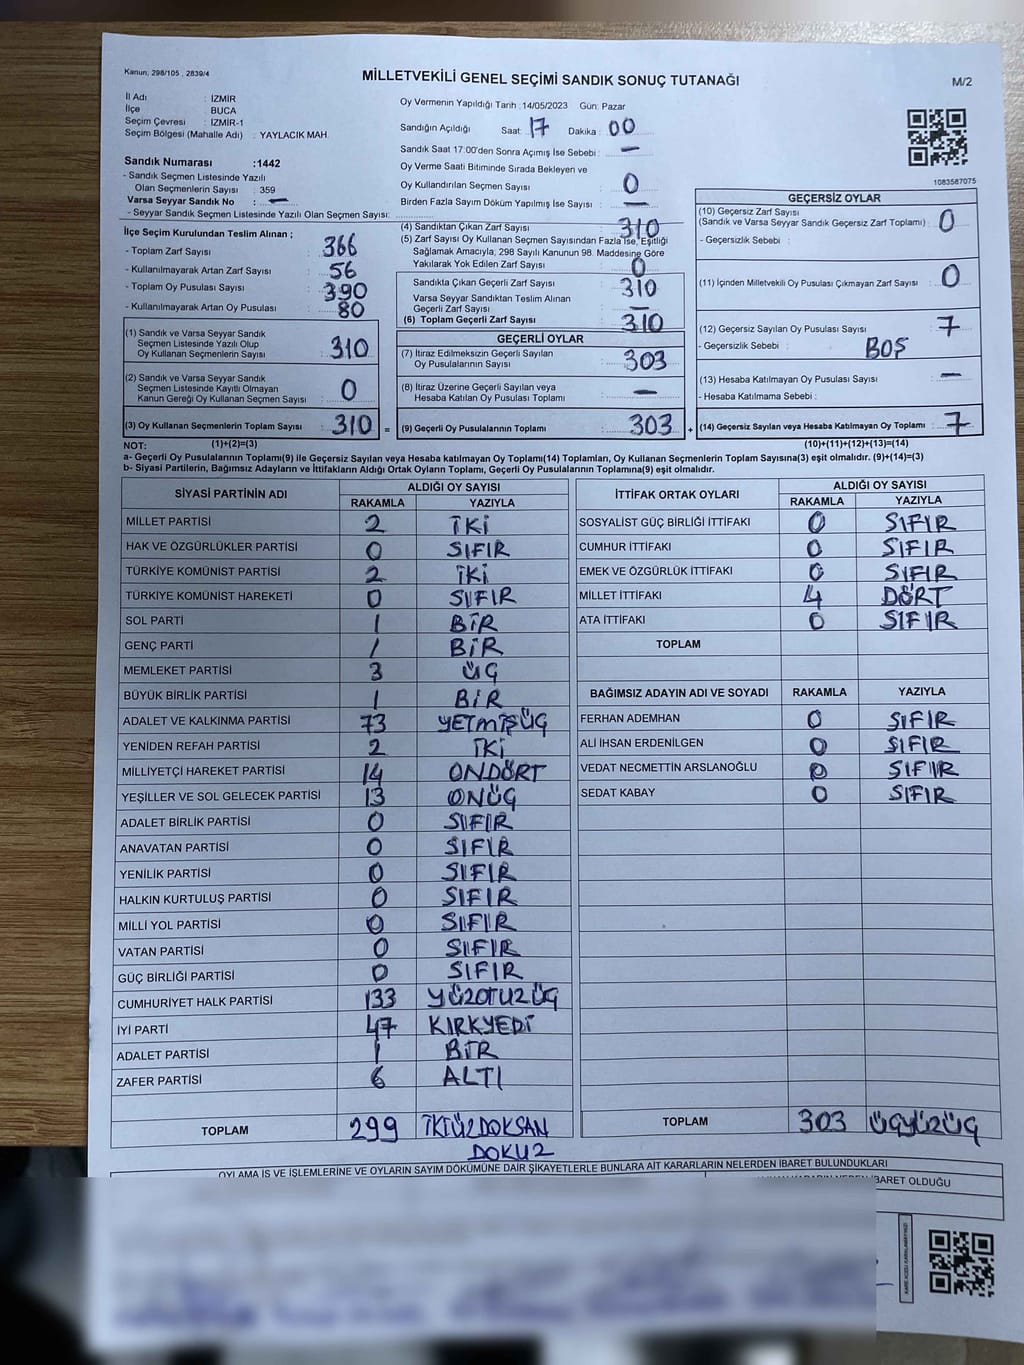 Kanun, 298/105 , 2839/4
MİLLETVEKİLİ GENEL SEÇİMİ SANDIK SONUÇ TUTANAĞI
M/2
İl Adı : İZMİR
İlçe BUCA
Seçim Çevresi : İZMİR-1
Seçim Bölgesi (Mahalle Adı) : YAYLACIK MAH.
Sandık Numarası :1442
- Sandık Seçmen Listesinde Yazılı
Olan Seçmenlerin Sayısı : 359
Varsa Seyyar Sandık No : —
- Seyyar Sandık Seçmen Listesinde Yazılı Olan Seçmen Sayısı:
Oy Vermenin Yapıldığı Tarih : 14/05/2023 Gün: Pazar
Sandığın Açıldığı Saat: 17 Dakika : 00
Sandık Saat 17:00'den Sonra Açımış İse Sebebi : —
Oy Verme Saati Bitiminde Sırada Bekleyen ve
Oy Kullandırılan Seçmen Sayısı : 0
Birden Fazla Sayım Döküm Yapılmış İse Sayısı : —
1083587075
İlçe Seçim Kurulundan Teslim Alınan ;
- Toplam Zarf Sayısı : 366
- Kullanılmayarak Artan Zarf Sayısı : 56
- Toplam Oy Pusulası Sayısı : 390
- Kullanılmayarak Artan Oy Pusulası : 80
(1) Sandık ve Varsa Seyyar Sandık
Seçmen Listesinde Yazılı Olup
Oy Kullanan Seçmenlerin Sayısı : 310
(2) Sandık ve Varsa Seyyar Sandık
Seçmen Listesinde Kayıtlı Olmayan
Kanun Gereği Oy Kullanan Seçmen Sayısı : 0
(3) Oy Kullanan Seçmenlerin Toplam Sayısı : 310 =
(4) Sandıktan Çıkan Zarf Sayısı : 310
(5) Zarf Sayısı Oy Kullanan Seçmen Sayısından Fazla İse, Eşitliği
Sağlamak Amacıyla, 298 Sayılı Kanunun 98. Maddesine Göre
Yakılarak Yok Edilen Zarf Sayısı : 0
Sandıkta Çıkan Geçerli Zarf Sayısı : 310
Varsa Seyyar Sandıktan Teslim Alınan
Geçerli Zarf Sayısı : —
(6) Toplam Geçerli Zarf Sayısı : 310
GEÇERLİ OYLAR
(7) İtiraz Edilmeksizin Geçerli Sayılan
Oy Pusulalarının Sayısı : 303
(8) İtiraz Üzerine Geçerli Sayılan veya
Hesaba Katılan Oy Pusulası Toplamı : —
(9) Geçerli Oy Pusulalarının Toplamı : 303 +
GEÇERSİZ OYLAR
(10) Geçersiz Zarf Sayısı
(Sandık ve Varsa Seyyar Sandık Geçersiz Zarf Toplamı) : 0
- Geçersizlik Sebebi :
(11) İçinden Milletvekili Oy Pusulası Çıkmayan Zarf Sayısı : 0
(12) Geçersiz Sayılan Oy Pusulası Sayısı : 7
- Geçersizlik Sebebi : BOŞ
(13) Hesaba Katılmayan Oy Pusulası Sayısı : —
- Hesaba Katılmama Sebebi :
(14) Geçersiz Sayılan veya Hesaba Katılmayan Oy Toplamı : 7
NOT: (1)+(2)=(3) (10)+(11)+(12)+(13)=(14)
a- Geçerli Oy Pusulalarının Toplamı(9) ile Geçersiz Sayılan veya Hesaba katılmayan Oy Toplamı(14) Toplamları, Oy Kullanan Seçmenlerin Toplam Sayısına(3) eşit olmalıdır. (9)+(14)=(3)
b- Siyasi Partilerin, Bağımsız Adayların ve İttifakların Aldığı Ortak Oyların Toplamı, Geçerli Oy Pusulalarının Toplamına(9) eşit olmalıdır.
SİYASİ PARTİNİN ADI ALDIĞI OY SAYISI
RAKAMLA YAZIYLA
MİLLET PARTİSİ 2 İKİ
HAK VE ÖZGÜRLÜKLER PARTİSİ 0 SIFIR
TÜRKİYE KOMÜNİST PARTİSİ 2 İKİ
TÜRKİYE KOMÜNİST HAREKETİ 0 SIFIR
SOL PARTİ 1 BİR
GENÇ PARTİ 1 BİR
MEMLEKET PARTİSİ 3 ÜÇ
BÜYÜK BİRLİK PARTİSİ 1 BİR
ADALET VE KALKINMA PARTİSİ 73 YETMİŞÜÇ
YENİDEN REFAH PARTİSİ 2 İKİ
MİLLİYETÇİ HAREKET PARTİSİ 14 ONDÖRT
YEŞİLLER VE SOL GELECEK PARTİSİ 13 ONÜÇ
ADALET BİRLİK PARTİSİ 0 SIFIR
ANAVATAN PARTİSİ 0 SIFIR
YENİLİK PARTİSİ 0 SIFIR
HALKIN KURTULUŞ PARTİSİ 0 SIFIR
MİLLİ YOL PARTİSİ 0 SIFIR
VATAN PARTİSİ 0 SIFIR
GÜÇ BİRLİĞİ PARTİSİ 0 SIFIR
CUMHURİYET HALK PARTİSİ 133 YÜZOTUZÜÇ
İYİ PARTİ 47 KIRKYEDİ
ADALET PARTİSİ 1 BİR
ZAFER PARTİSİ 6 ALTI
TOPLAM 299 İKİÜZDOKSAN
DOKUZ
İTTİFAK ORTAK OYLARI ALDIĞI OY SAYISI
RAKAMLA YAZIYLA
SOSYALİST GÜÇ BİRLİĞİ İTTİFAKI 0 SIFIR
CUMHUR İTTİFAKI 0 SIFIR
EMEK VE ÖZGÜRLÜK İTTİFAKI 0 SIFIR
MİLLET İTTİFAKI 4 DÖRT
ATA İTTİFAKI 0 SIFIR
TOPLAM
BAĞIMSIZ ADAYIN ADI VE SOYADI RAKAMLA YAZIYLA
FERHAN ADEMHAN 0 SIFIR
ALİ İHSAN ERDENİLGEN 0 SIFIR
VEDAT NECMETTİN ARSLANOĞLU 0 SIFIR
SEDAT KABAY 0 SIFIR
TOPLAM 303 ÜÇYÜZÜÇ
OYLAMA İŞ VE İŞLEMLERİNE VE OYLARIN SAYIM DÖKÜMÜNE DAİR ŞİKAYETLERLE BUNLARA AİT KARARLARIN NELERDEN İBARET BULUNDUKLARI
İBARET OLDUĞU